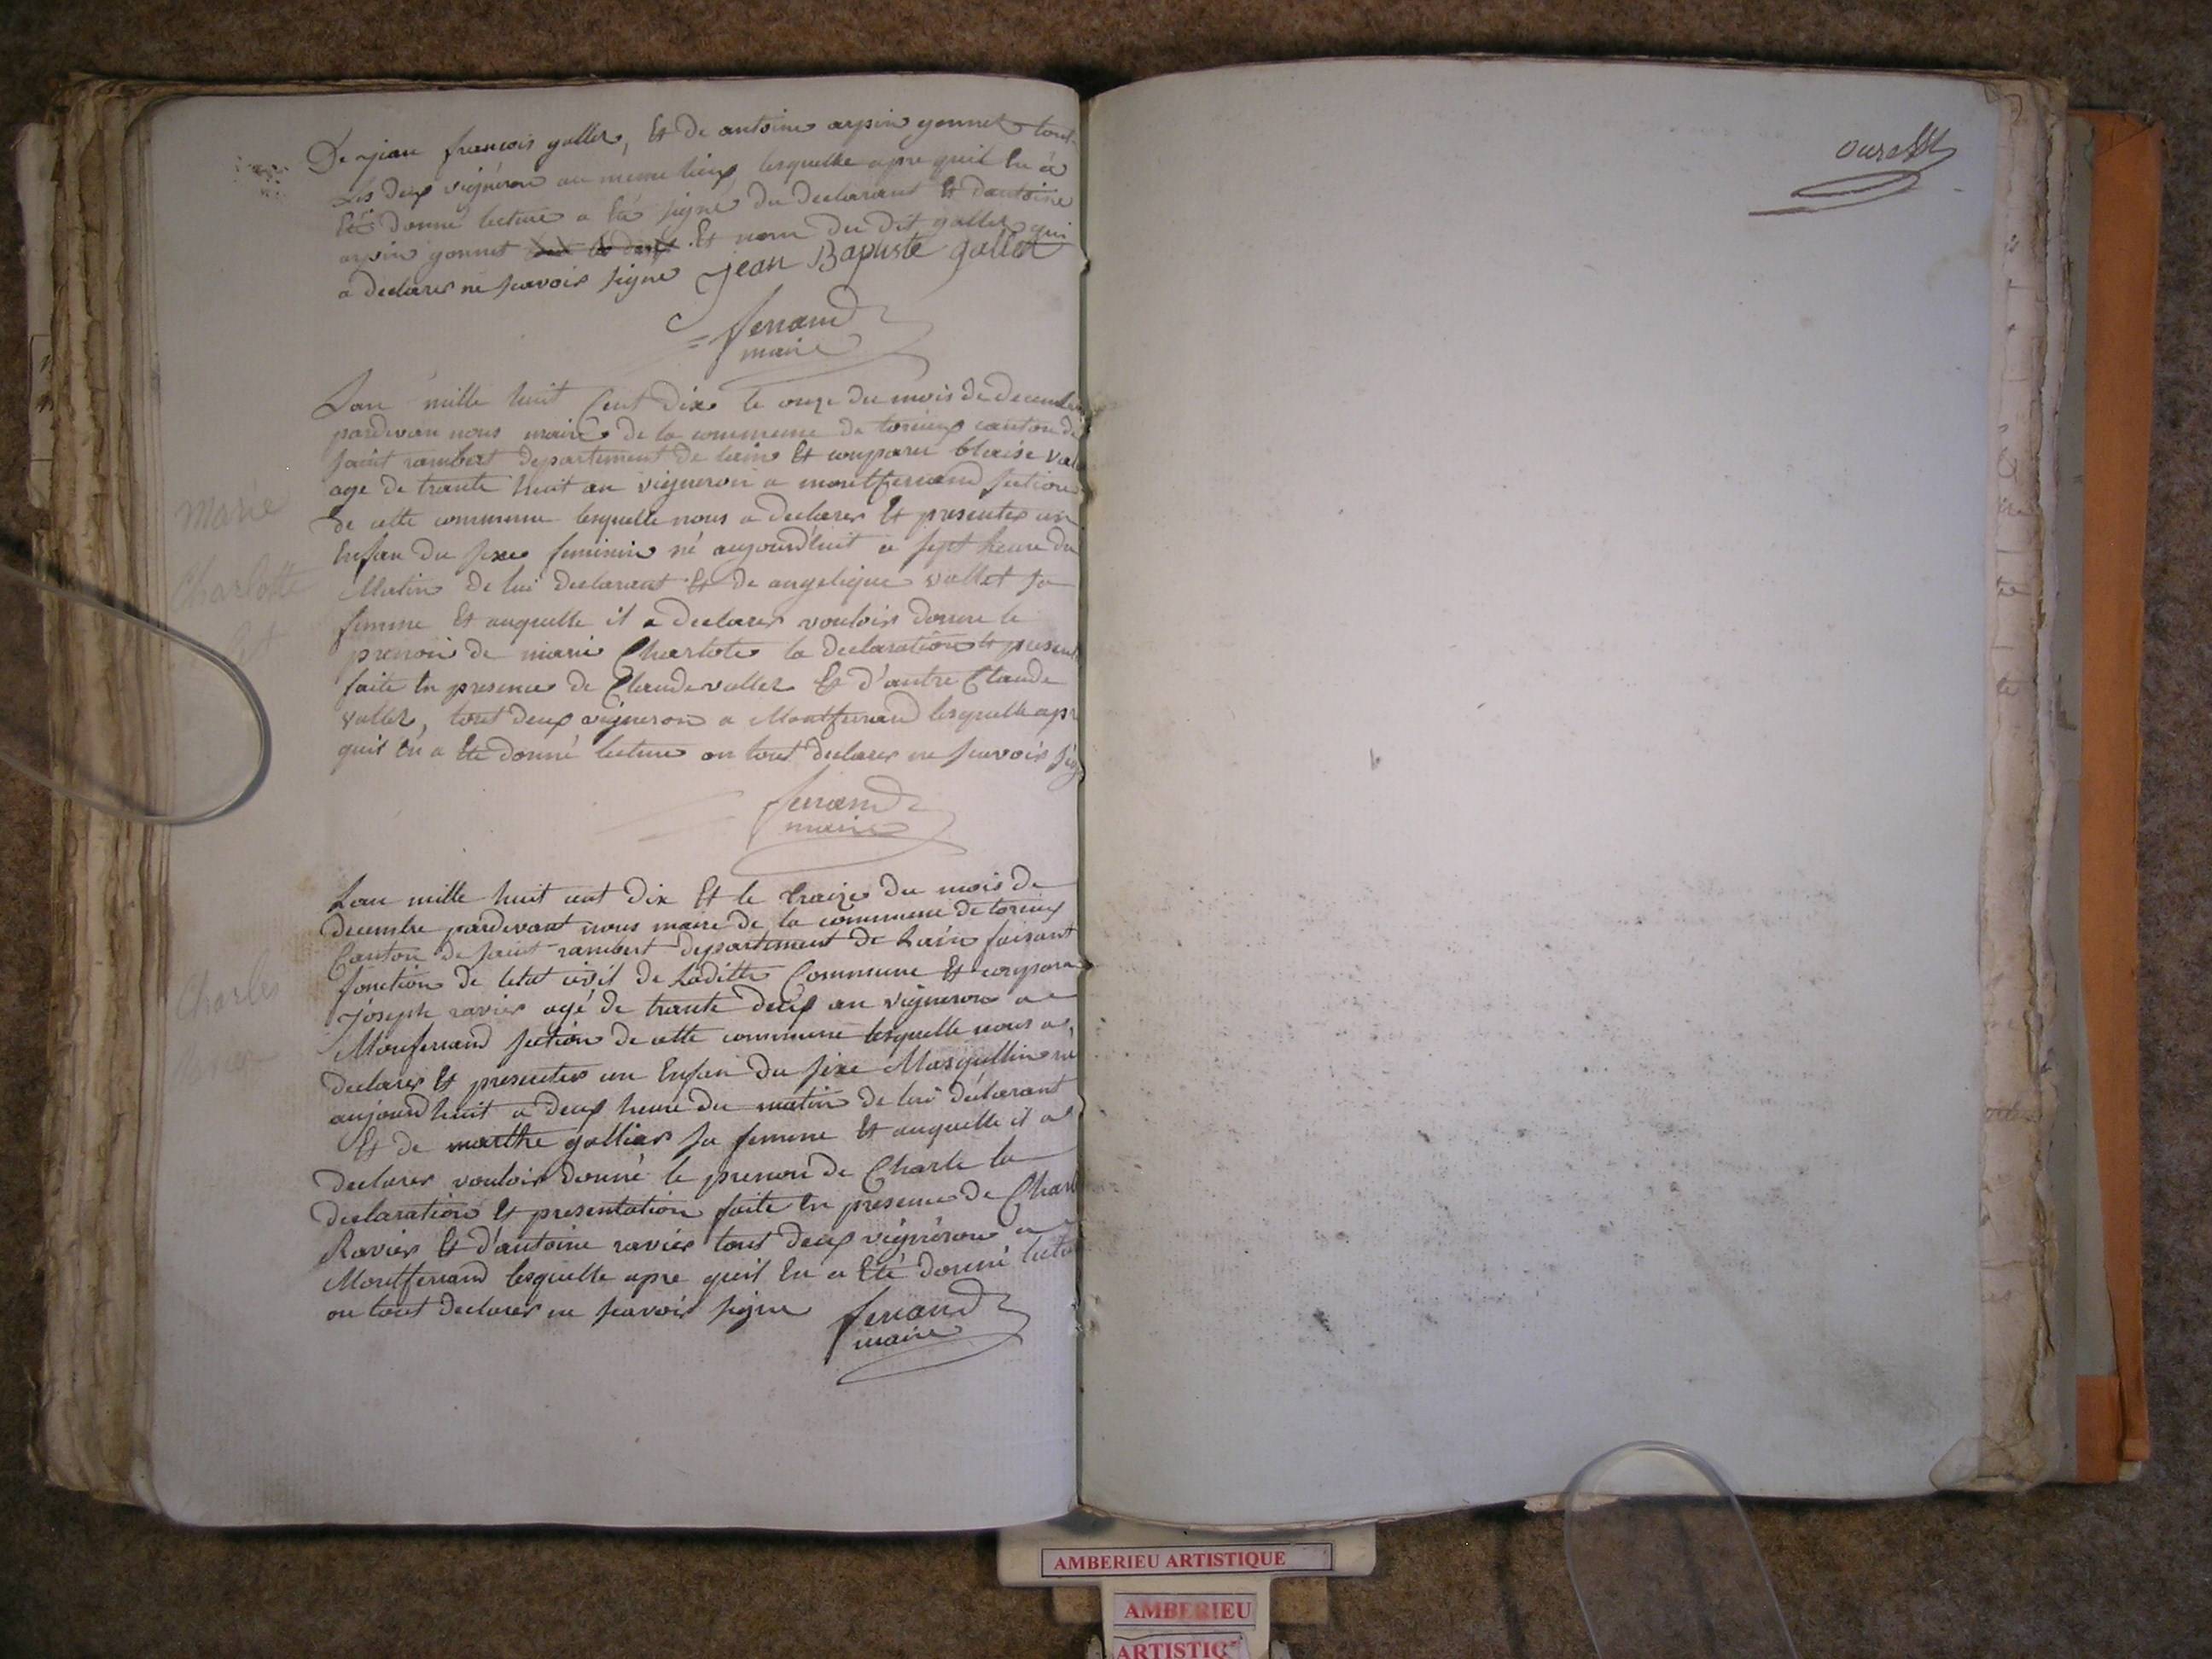 De jean francois gallet, Et de antoine arpin gonnet tout
Les deux vigneron au meme lieux lesquelle apre quil En a
Eté donné lecture a Eté signé du declarant Et dantoine
arpin gonnet Et non du dit gallet qui
a declarer ne scavoir signe jean Baptiste gallet
ferrand
maire
Lan mille huit Cent dix le onze du mois de decembre
pardevan nous maire de la commune de torcieux canton de
saint rambert departement de lain Et comparu blaise val
age de trante huit an vigneron a montferrand section
de cette commune lesquelle nous a declarer Et presenter un
Enfan du sexe feminin né aujourdhuit a sept heure du
Matin de lui declarant Et de angelique vallet sa
femme Et auquelle il a declarer vouloir donne le
prenom de marie Charlote la declaration Et present
faite En presence de Claude vallet Et d'autre Claude
vallet, tout deux vigneron a Montferrand lesquelle apr
quil En a Eté donné lecture on tout declarer ne scavoir sig
ferrand
maire
Marie
Charlotte
Lan mille huit cent dix Et le traize du mois de
decembre pardevant nous maire de la commune de torcieux
Canton de saint rambert departement de Lain faisant
fonction de letat civil de Laditte Commune Et compara
joseph ravier agé de trante deux an vigneron a
Monferrand section de cette commune lesquelle nous a
declarer Et presenter un Enfan du sexe Masqullin né
aujourdhuit a deux heure du matin de lui declarant
Et de marthe gallier sa femme Et auquelle il a
declarer vouloir donné le prenom de Charle la
declaration Et presentation faite En presence de Charl
Ravier Et d'antoine ravier tout deux vigneron a
Montferrand lesquelle apre quil En a Eté donné lectu
on tout declarer ne scavoir signe
ferrand
maire
Charles
AMBERIEU ARTISTIQUE
AMBERIEU
ARTISTIQ